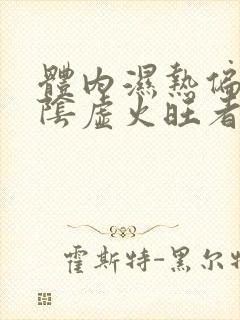 體內濕熱偏
陰虛火旺看
霍斯特-黑尔特